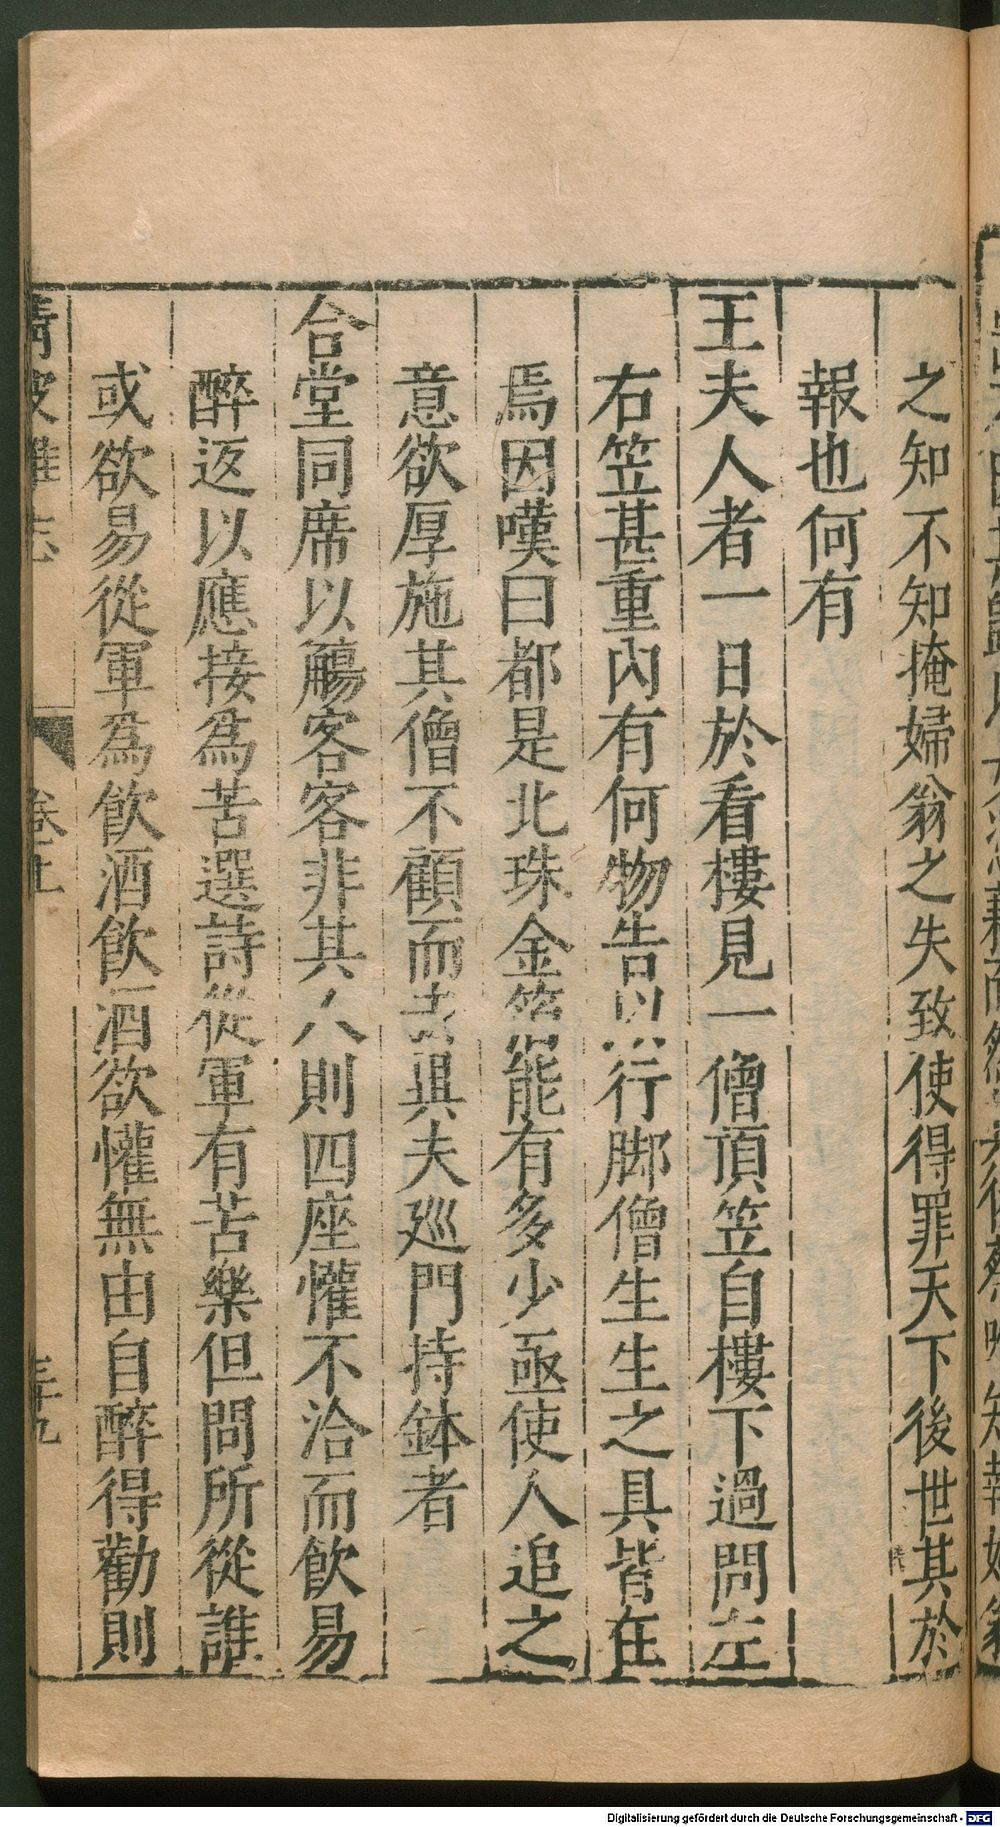 之知不知掩婦翁之失致使得罪天下後世其於
報也何有
王夫人者一日於看樓見一僧頂笠自樓下過問左
右笠甚重內有何物告以行脚僧生生之具皆在
焉因嘆曰都是北珠金箔能有多少亟使人追之
意欲厚施其僧不顧而去與夫廵門持鉢者
合堂同席以觴客客非其人則四座懽不洽而飲易
醉返以應接爲苦選詩從軍有苦樂但問所從誰
或欲易從軍爲飲酒飲酒欲懽無由自醉得勸則
清波雜志
卷上
三十九
Digitalisierung gefördert durch die Deutsche Forschungsgemeinschaft - DFG